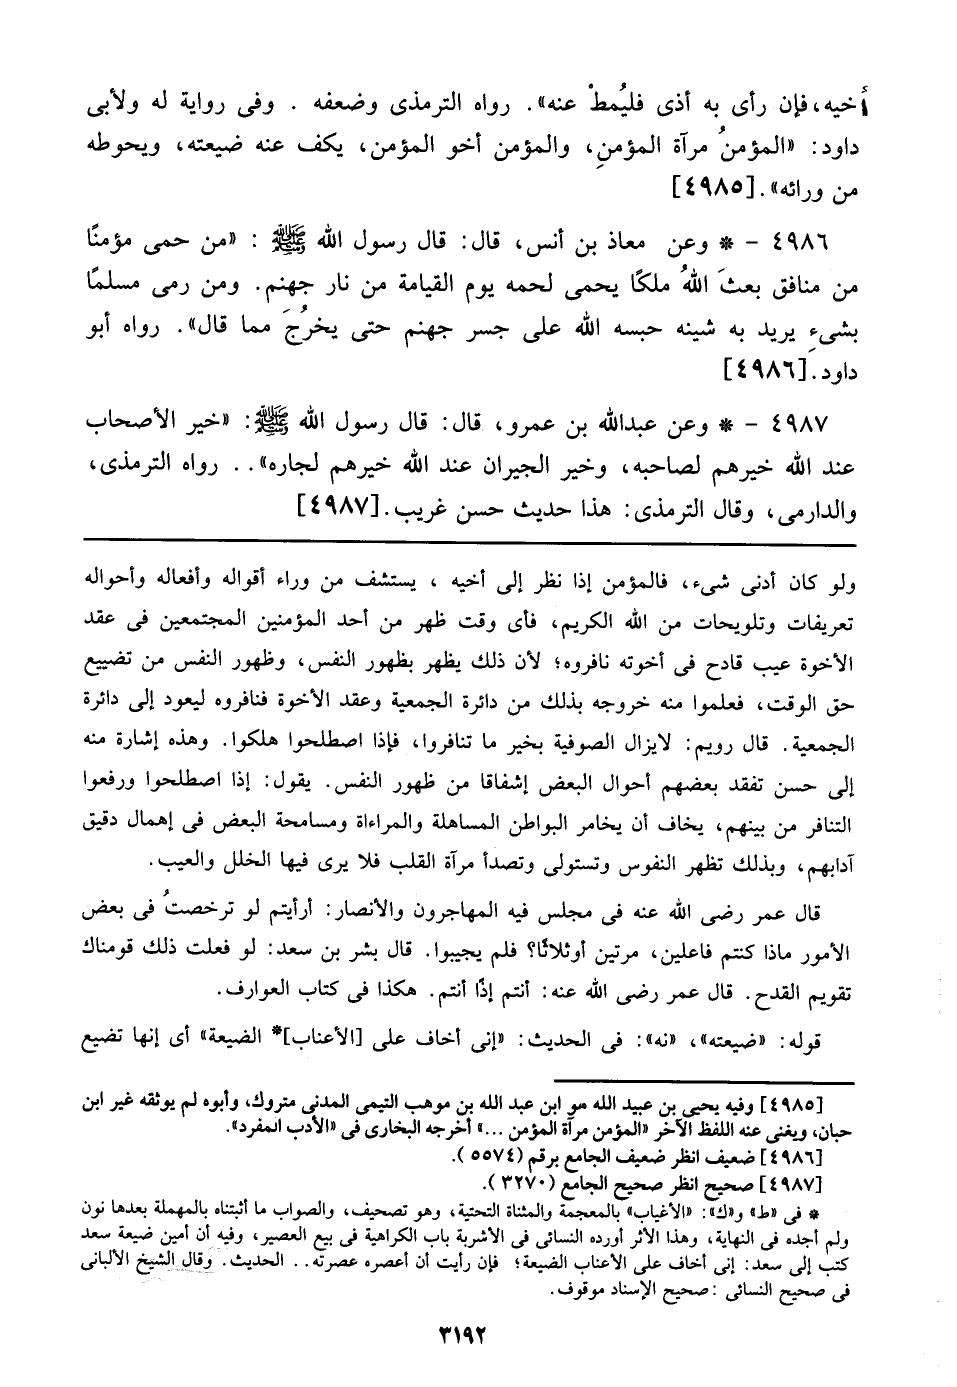 أخيه، فإن رأى به أذى فليُمطْ عنه». رواه الترمذى وضعفه . وفى رواية له ولأبى
داود: «المؤمنُ مرآة المؤمنِ، والمؤمن أخو المؤمن، يكف عنه ضيعته، ويحوطه
من ورائه».[٤٩٨٥]
٤٩٨٦ – * وعن معاذ بن أنس، قال: قال رسول الله ﷺ : «من حمى مؤمنًا
من منافق بعثَ اللهُ ملكًا يحمى لحمه يوم القيامة من نار جهنم. ومن رمى مسلمًا
بشىءٍ يريد به شينه حبسه الله على جسر جهنم حتى يخرُجَ مما قال». رواه أبو
داود.[٤٩٨٦]
٤٩٨٧ – * وعن عبدالله بن عمرو، قال: قال رسول الله ﷺ: «خير الأصحاب
عند الله خيرهم لصاحبه، وخير الجيران عند الله خيرهم لجاره».. رواه الترمذى،
والدارمى، وقال الترمذى: هذا حديث حسن غريب.[٤٩٨٧]
ولو كان أدنى شىء، فالمؤمن إذا نظر إلى أخيه ، يستشف من وراء أقواله وأفعاله وأحواله
تعريفات وتلويحات من الله الكريم، فأى وقت ظهر من أحد المؤمنين المجتمعين فى عقد
الأخوة عيب قادح فى أخوته نافروه؛ لأن ذلك يظهر بظهور النفس، وظهور النفس من تضييع
حق الوقت، فعلموا منه خروجه بذلك من دائرة الجمعية وعقد الأخوة فنافروه ليعود إلى دائرة
الجمعية. قال رويم: لايزال الصوفية بخير ما تنافروا، فإذا اصطلحوا هلكوا. وهذه إشارة منه
إلى حسن تفقد بعضهم أحوال البعض إشفاقا من ظهور النفس. يقول: إذا اصطلحوا ورفعوا
التنافر من بينهم، يخاف أن يخامر البواطن المساهلة والمراءاة ومسامحة البعض فى إهمال دقيق
آدابهم، وبذلك تظهر النفوس وتستولى وتصدأ مرآة القلب فلا يرى فيها الخلل والعيب.
قال عمر رضى الله عنه فى مجلس فيه المهاجرون والأنصار: أرأيتم لو ترخصتُ فى بعض
الأمور ماذا كنتم فاعلين، مرتين أوثلاثًا؟ فلم يجيبوا. قال بشر بن سعد: لو فعلت ذلك قومناك
تقويم القدح. قال عمر رضى الله عنه: أنتم إذًا أنتم. هكذا فى كتاب العوارف.
قوله: «ضيعته»، «نه»: فى الحديث: «إنى أخاف على [الأعناب]* الضيعة» أى إنها تضيع
[٤٩٨٥] وفيه يحيى بن عبيد الله هو ابن عبد الله بن موهب التيمى المدنى متروك، وأبوه لم يوثقه غير ابن
حبان، ويغنى عنه اللفظ الآخر «المؤمن مرآة المؤمن ...» أخرجه البخارى فى «الأدب المفرد».
[٤٩٨٦] ضعيف انظر ضعيف الجامع برقم (٥٥٧٤).
[٤٩٨٧] صحيح انظر صحيح الجامع (٣٢٧٠).
* فى «ط» و«ك»: «الأغياب» بالمعجمة والمثناة التحتية، وهو تصحيف، والصواب ما أثبتناه بالمهملة بعدها نون
ولم أجده فى النهاية، وهذا الأثر أورده النسائى فى الأشربة باب الكراهية فى بيع العصير، وفيه أن أمين ضيعة سعد
كتب إلى سعد: إنى أخاف على الأعناب الضيعة؛ فإن رأيت أن أعصره عصرته.. الحديث. وقال الشيخ الألبانى
فى صحيح النسائى :صحيح الإسناد موقوف.
٣١٩٢